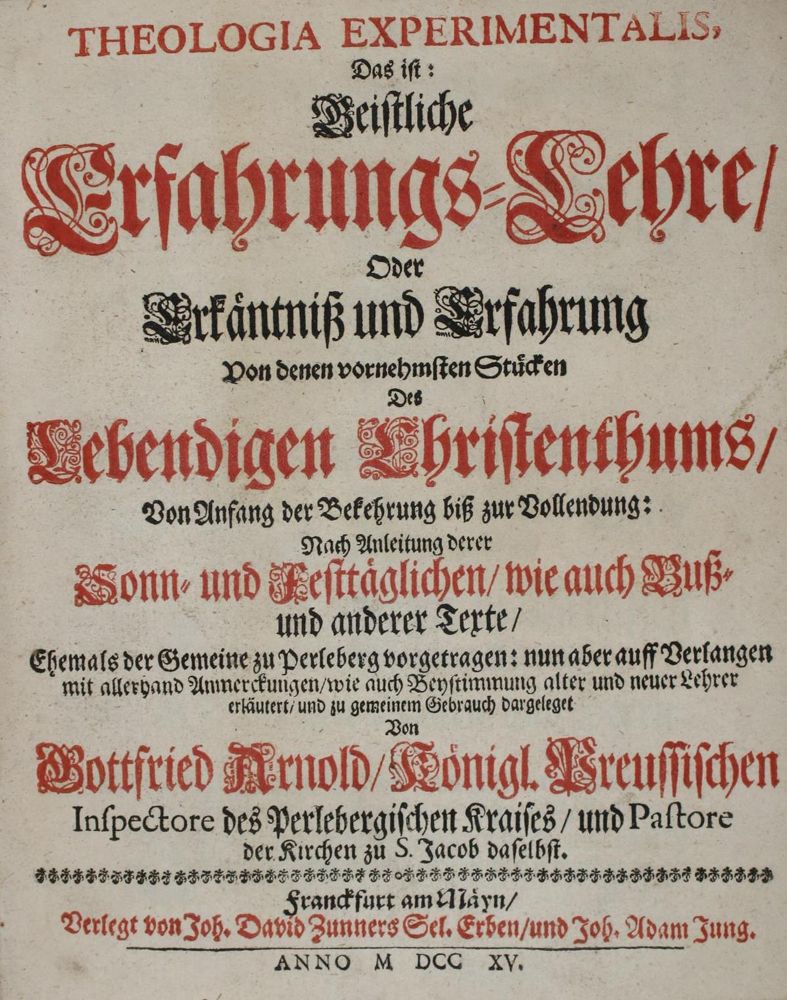 THEOLOGIA EXPERIMENTALIS,
Das ist:
Geistliche
Erfahrungs-Lehre/
Oder
Erkäntniß und Erfahrung
Von denen vornehmsten Stücken
Des
Lebendigen Christenthums/
Von Anfang der Bekehrung biß zur Vollendung:
Nach Anleitung derer
Sonn- und Festtäglichen/ wie auch Buß-
und anderer Texte/
Ehemals der Gemeine zu Perleberg vorgetragen: nun aber auff Verlangen
mit allerhand Anmerckungen/wie auch Beystimmung alter und neuer Lehrer
erläutert/ und zu gemeinem Gebrauch dargeleget
Von
Gottfried Arnold/ Königl. Preussischen
Inspectore des Perlebergischen Kraises/ und Pastore
der Kirchen zu S. Jacob daselbst.
Franckfurt am Mäyn/
Verlegt von Joh. David Zunners Sel. Erben/und Joh. Adam Jung.
ANNO M DCC XV.